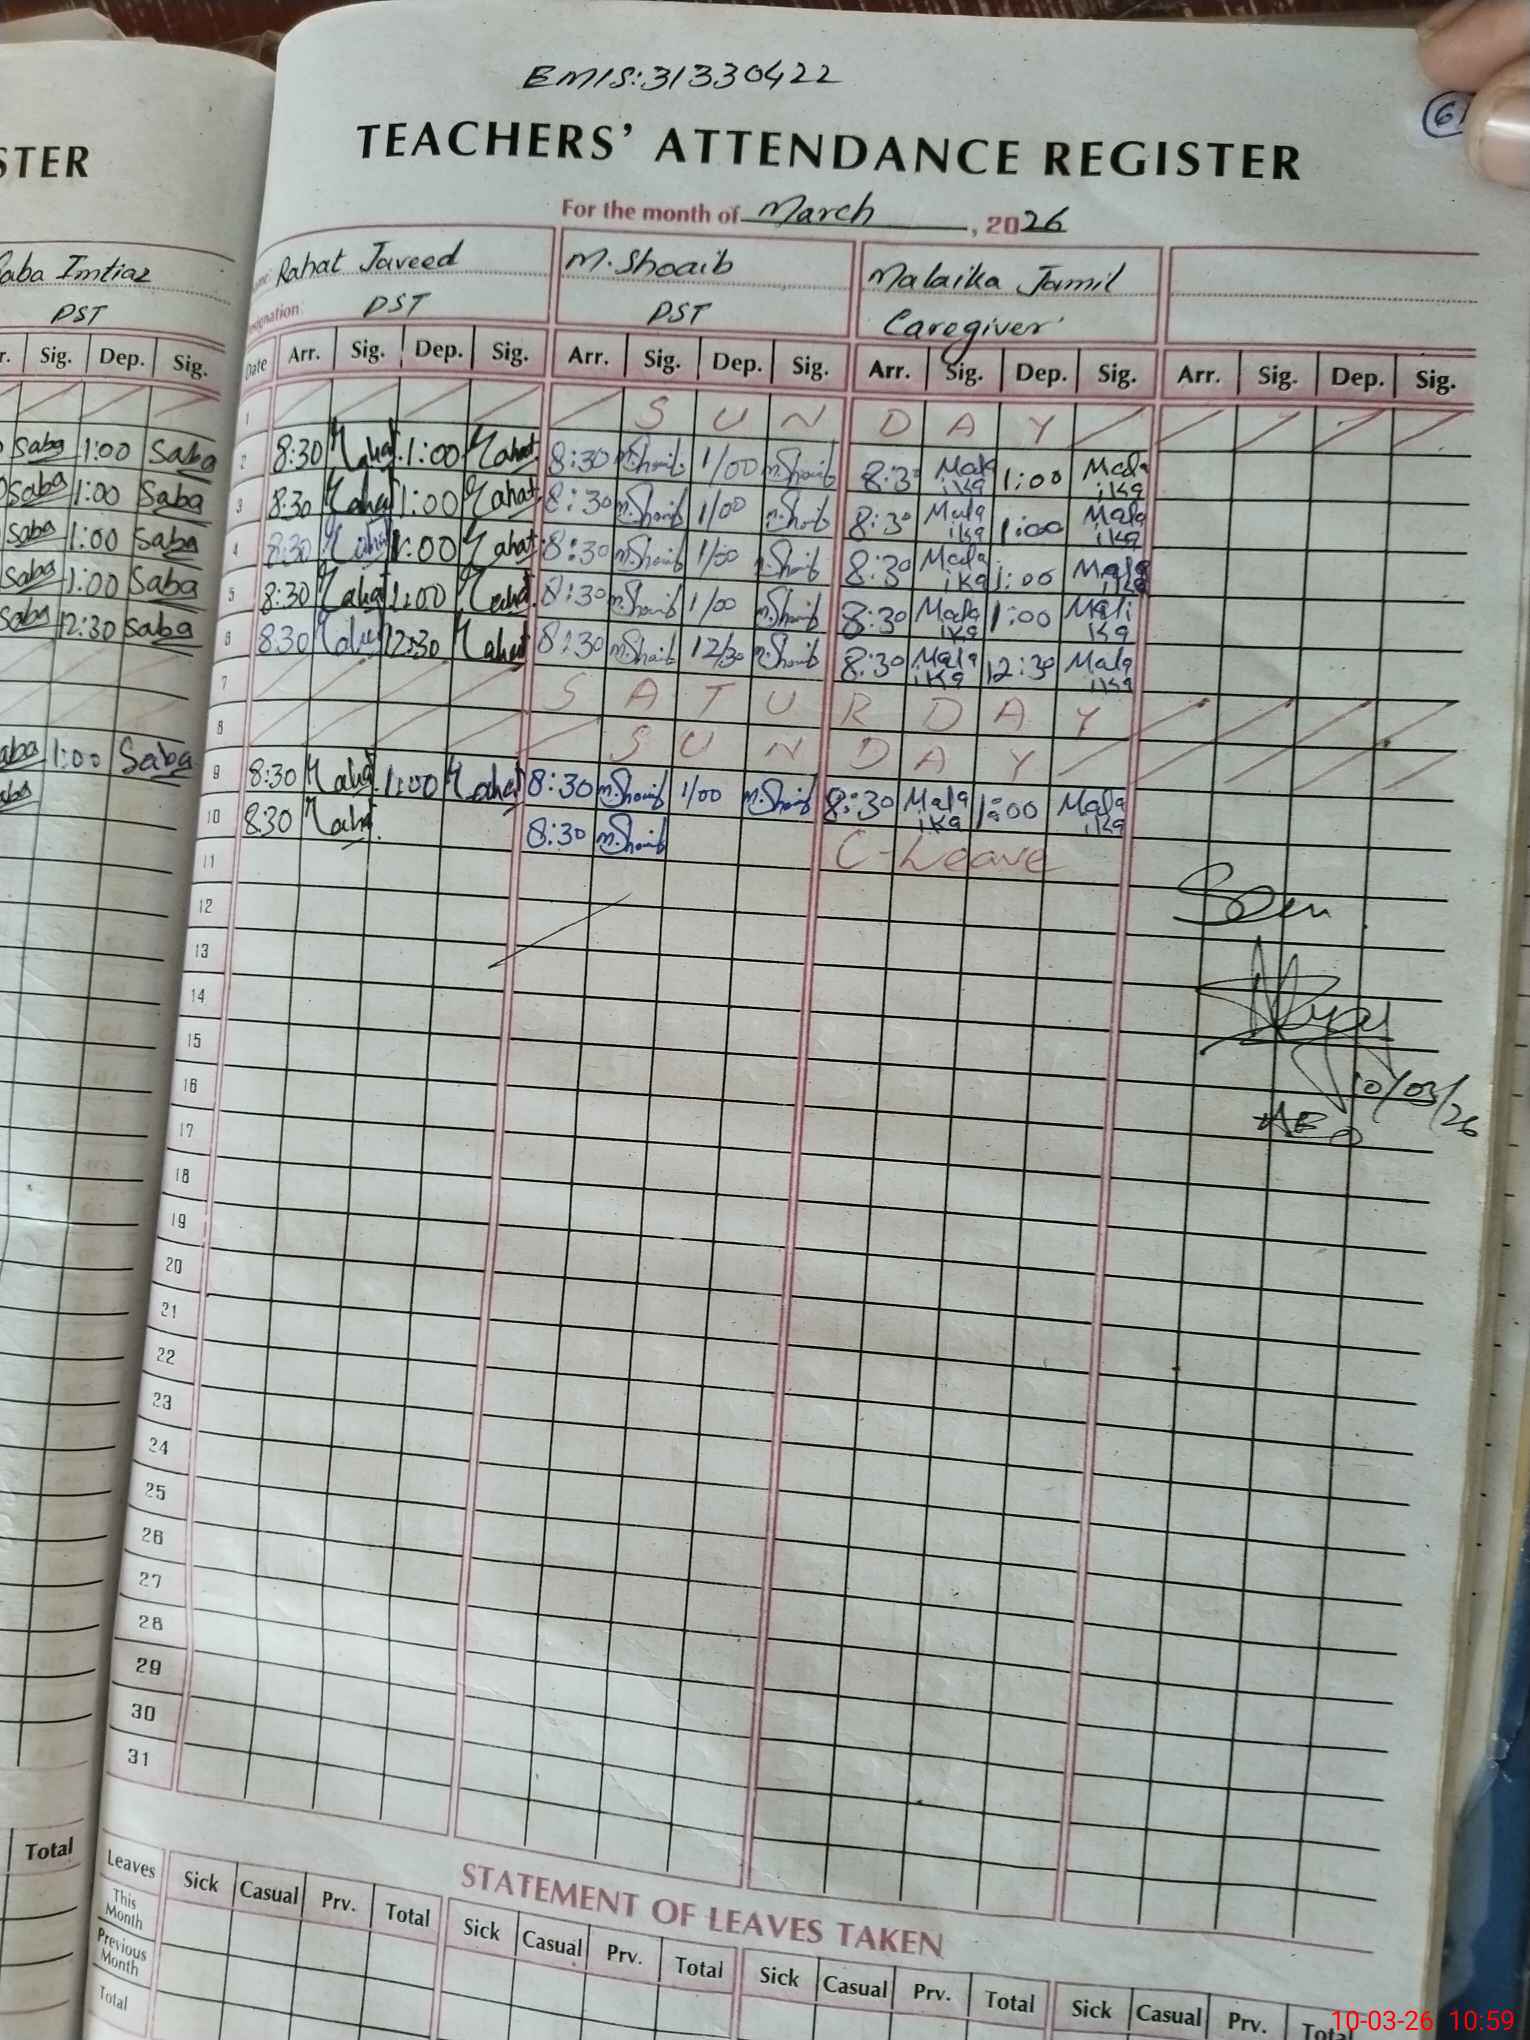 EMIS:31330422
61
STER
TEACHERS' ATTENDANCE REGISTER
For the month of March, 2026
Saba Imtiaz
Rahat Javeed M. Shoaib Malaika Jamil
PST
Designation: PST PST Caregiver
Sig. Dep. Sig.
Date Arr. Sig. Dep. Sig. Arr. Sig. Dep. Sig. Arr. Sig. Dep. Sig. Arr. Sig. Dep. Sig.
1 SUNDAY
Saba 1:00 Saba
2 8:30 Rahat 1:00 Rahat 8:30 M.Shoaib 1/00 M.Shoaib 8:30 Malaika 1:00 Malaika
Saba 1:00 Saba
3 8:30 Rahat 1:00 Rahat 8:30 M.Shoaib 1/00 M.Shoaib 8:30 Malaika 1:00 Malaika
Saba 1:00 Saba
4 8:30 Rahat 1:00 Rahat 8:30 M.Shoaib 1/00 M.Shoaib 8:30 Malaika 1:00 Malaika
Saba 1:00 Saba
5 8:30 Rahat 1:00 Rahat 8:30 M.Shoaib 1/00 M.Shoaib 8:30 Malaika 1:00 Malika
Saba 12:30 Saba
6 8:30 Rahat 12:30 Rahat 8:30 M.Shoaib 12/30 M.Shoaib 8:30 Malaika 12:30 Malaika
7 SATURDAY
8 SUNDAY
Saba 1:00 Saba
9 8:30 Rahat 1:00 Rahat 8:30 M.Shoaib 1/00 M.Shoaib 8:30 Malaika 1:00 Malaika
Saba
10 8:30 Rahat 8:30 M.Shoaib C-Leave
11
12
13
14
15
16
10/03/26
AEO
17
18
19
20
21
22
23
24
25
26
27
28
29
30
31
Total
STATEMENT OF LEAVES TAKEN
Leaves Sick Casual Prv. Total Sick Casual Prv. Total Sick Casual Prv. Total Sick Casual Prv. Total
This Month
Previous Month
Total
10-03-26 10:59